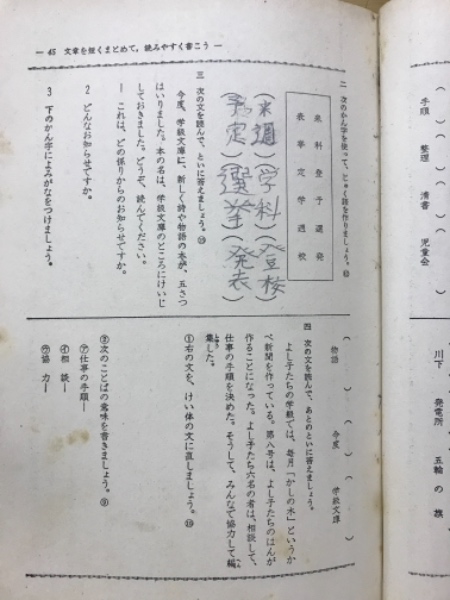 手順
整理
清書
児童会
川下
発電所
五輪の旗
— 45 文章を短くまとめて、読みやすく書こう —
二 次のかん字を使って、じゅく語を作りましょう。
来 科 登 予 選 発
表 挙 定 学 週 校
(来週)(学科)(登校)
(予定)(選挙)(発表)
三 次の文を読んで、といに答えましょう。
今度、学級文庫に、新しく詩や物語の本が、五さつ
はいりました。本の名は、学級文庫のところにけいじ
しておきました。どうぞ、読んでください。
1 これは、どの係りからのお知らせですか。
2 どんなお知らせですか。
3 下のかん字によみがなをつけましょう。
物語
今度
学級文庫
四 次の文を読んで、あとのといに答えましょう。
よし子たちの学級では、毎月「かしの木」というか
べ新聞を作っている。第八号は、よし子たちのはんが
作ることになった。よし子たち六名の者は、相談して、
仕事の手順を決めた。そうして、みんなで協力して編
集した。
①右の文を、けい体の文に直しましょう。
②次のことばの意味を書きましょう。
㋐仕事の手順—
㋑相談—
㋒協力—